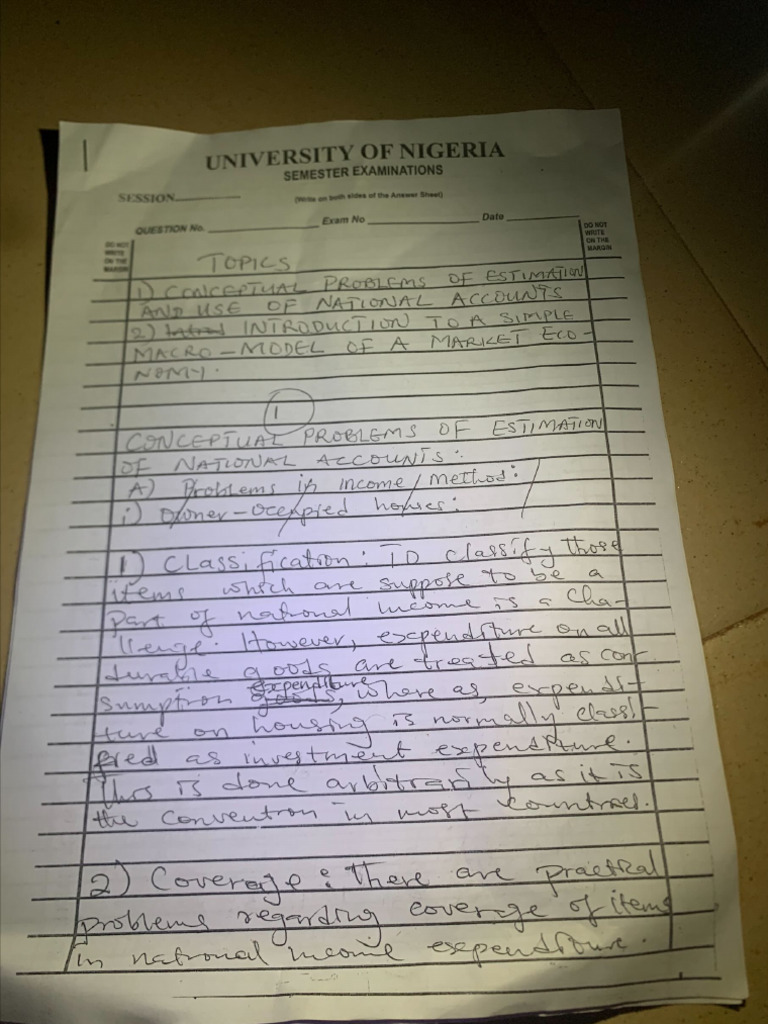 UNIVERSITY OF NIGERIA
SEMESTER EXAMINATIONS
(Write on both sides of the Answer Sheet)
SESSION
QUESTION No. Exam No Date
DO NOT WRITE ON THE MARGIN
DO NOT WRITE ON THE MARGIN
TOPICS
1) CONCEPTUAL PROBLEMS OF ESTIMATION
AND USE OF NATIONAL ACCOUNTS
2) Introd INTRODUCTION TO A SIMPLE
MACRO-MODEL OF A MARKET ECO-
NOMY.
1
CONCEPTUAL PROBLEMS OF ESTIMATION
OF NATIONAL ACCOUNTS:
A) Problems in income method:
i) Owner-occupied houses:
1) Classification: To classify those
items which are suppose to be a
part of national income is a cha-
llenge. However, expenditure on all
durable goods are treated as con-
sumption goods expenditure, where as, expendi-
ture on housing is normally classi-
fied as investment expenditure.
This is done arbitrarily as it is
the convention in most countries.
2) Coverage: There are practical
problems regarding coverage of items
in national income expenditure.